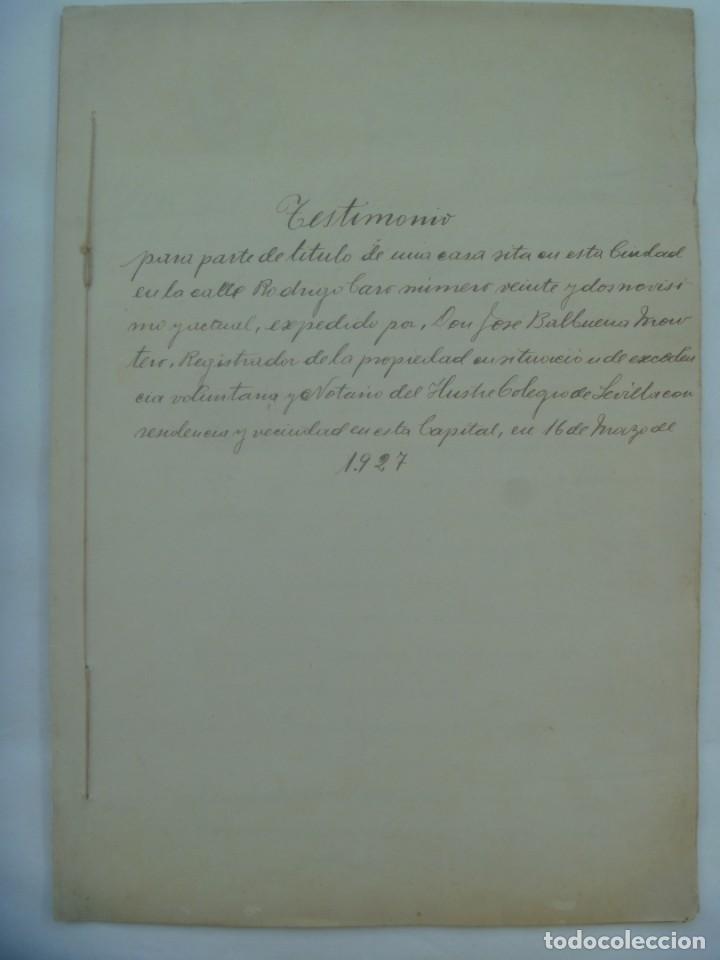 Testimonio
para parte de titulo de una casa sita en esta Ciudad
en la calle Rodrigo Caro número veinte y dos novisi
mo y actual, expedido por, Don Jose Balbuena Mon
tero, Registrador de la propiedad en situación de exceden
cia voluntaria y Notario del Ilustre Colegio de Sevilla con
residencia y vecindad en esta Capital, en 16 de Marzo de
1.927
todocoleccion